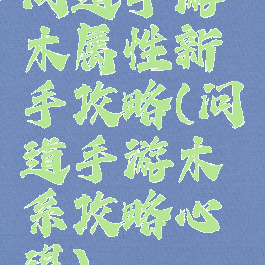 问道手游
木属性新
手攻略(问
道手游木
系攻略心
得)